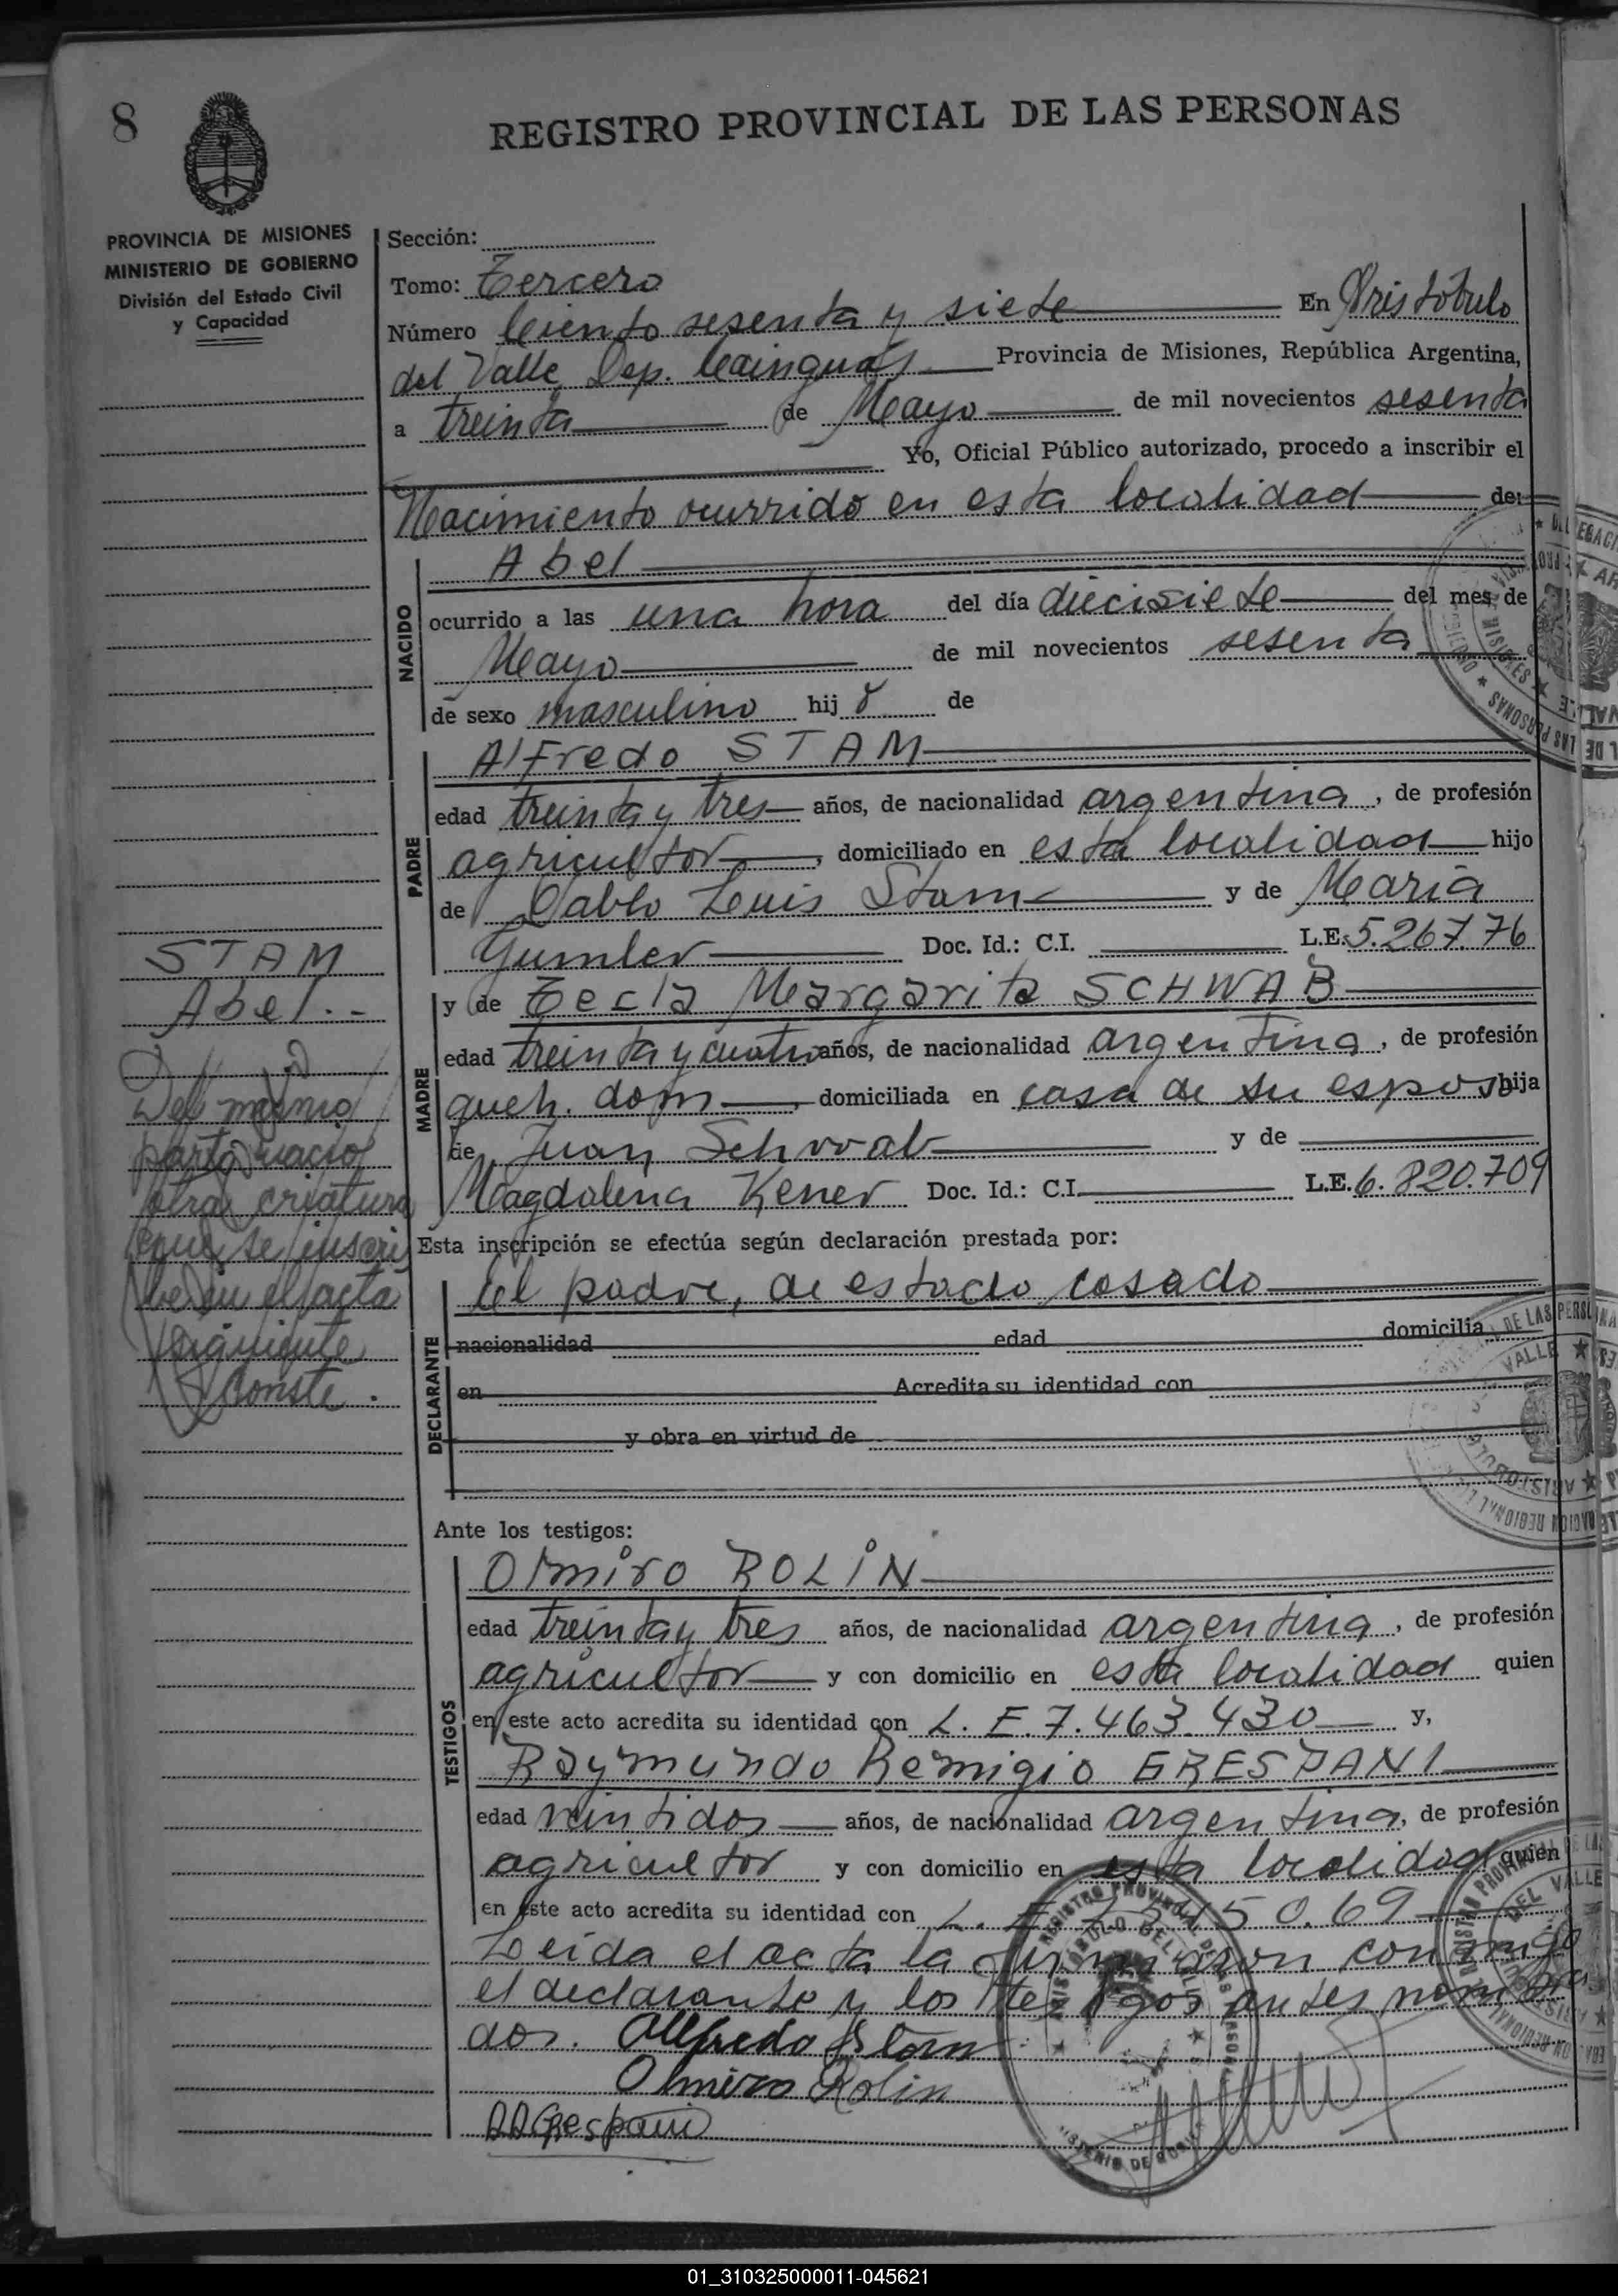 8
REGISTRO PROVINCIAL DE LAS PERSONAS
PROVINCIA DE MISIONES
MINISTERIO DE GOBIERNO
División del Estado Civil
y Capacidad
Sección:
Tomo: Tercero
Número Ciento sesenta y siete En Aristóbulo
del Valle Dep. Cainguás Provincia de Misiones, República Argentina,
a treinta de Mayo de mil novecientos sesenta
Yo, Oficial Público autorizado, procedo a inscribir el
Nacimiento ocurrido en esta localidad de:
NACIDO
Abel
ocurrido a las una hora del día diecisiete del mes de
Mayo de mil novecientos sesenta
de sexo masculino hijo de
PADRE
Alfredo STAM
edad treinta y tres años, de nacionalidad argentina, de profesión
agricultor, domiciliado en esta localidad hijo
de Pablo Luis Stam y de María
Gumler Doc. Id.: C.I. L.E. 5.267.76
MADRE
y de Tecla Margarita SCHWAB
edad treinta y cuatro años, de nacionalidad argentina, de profesión
queh. dom, domiciliada en casa de su esposo hija
de Juan Schwab y de
Magdalena Kener Doc. Id.: C.I. L.E. 6.820.709
STAM
Abel.-
Del mismo
parto nació
otra criatura
que se inscri
be en el acta
siguiente
Conste.
Esta inscripción se efectúa según declaración prestada por:
DECLARANTE
el padre, de estado casado
nacionalidad edad domicilia
en Acredita su identidad con
y obra en virtud de
Ante los testigos:
TESTIGOS
Olmiro ROLIN
edad treinta y tres años, de nacionalidad argentina, de profesión
agricultor y con domicilio en esta localidad quien
en este acto acredita su identidad con L.E. 7.463.430 y,
Raymundo Remigio GRESPANI
edad veintidos años, de nacionalidad argentina, de profesión
agricultor y con domicilio en esta localidad quien
en este acto acredita su identidad con L.E. 50.69
Leida el acta la firmaron conmigo
el declarante y los testigos antes nombra
dos. Alfredo Stam
Olmiro Rolin
RRGrespani
01_310325000011-045621